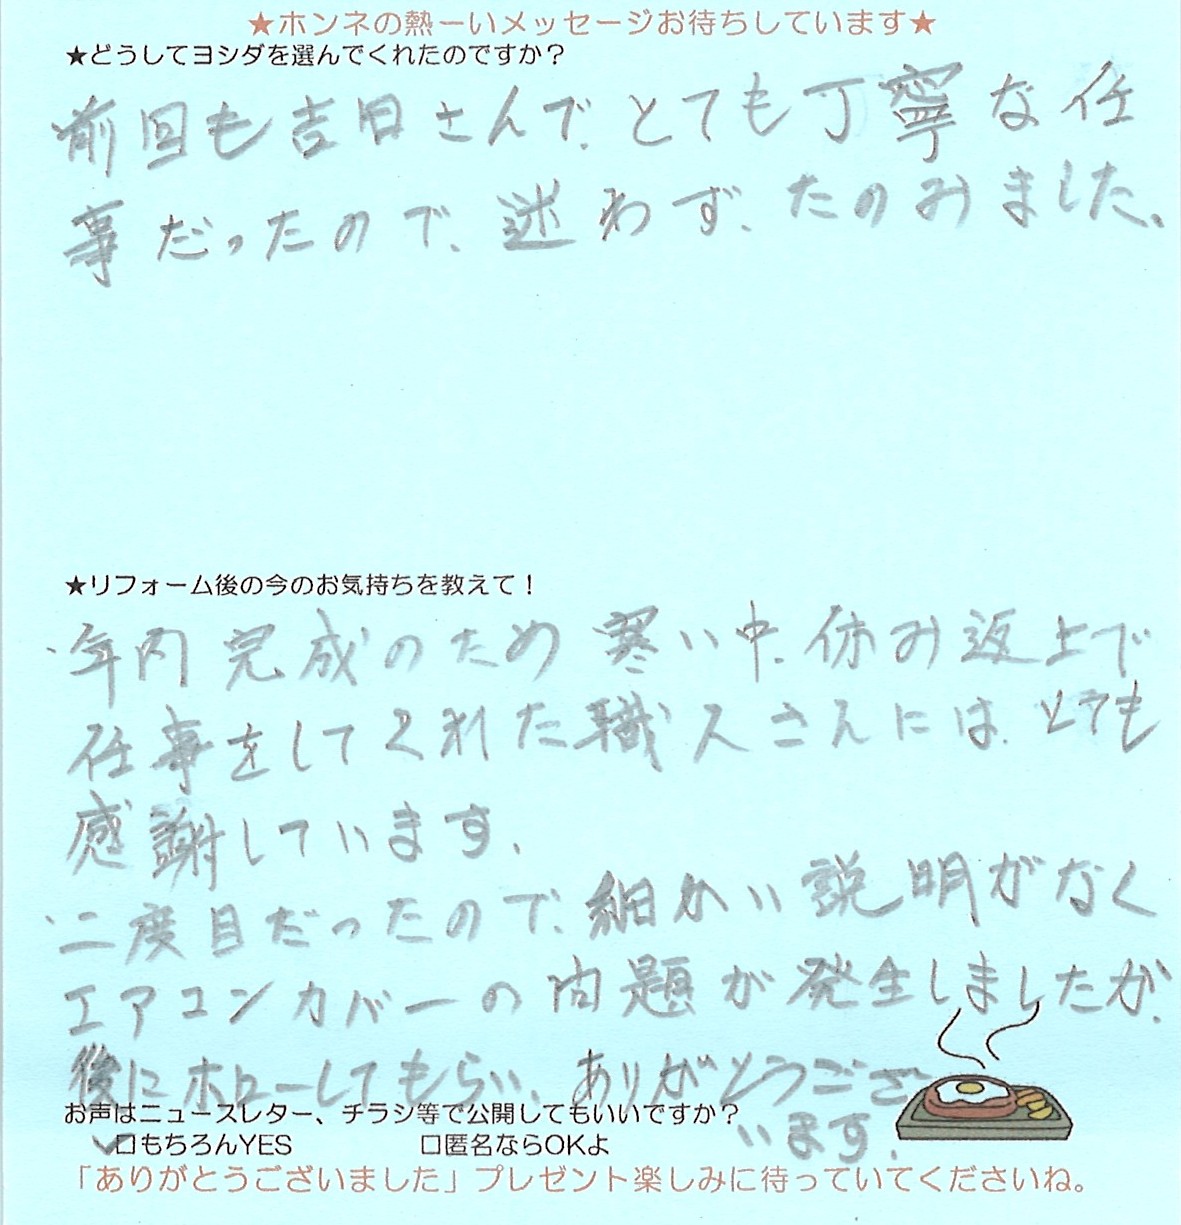 ★ホンネの熱ーいメッセージお待ちしています★
★どうしてヨシダを選んでくれたのですか？
前回も吉田さんで、とても丁寧な仕
事だったので、迷わず、たのみました。
★リフォーム後の今のお気持ちを教えて！
・年内完成のため寒い中、休み返上で
仕事をしてくれた職人さんには、とても
感謝しています。
・二度目だったので、細かい説明がなく
エアコンカバーの問題が発生しましたが、
後にホローしてもらい、ありがとうござ
います。
お声はニュースレター、チラシ等で公開してもいいですか？
☑もちろんYES □匿名ならOKよ
「ありがとうございました」プレゼント楽しみに待っていてくださいね。